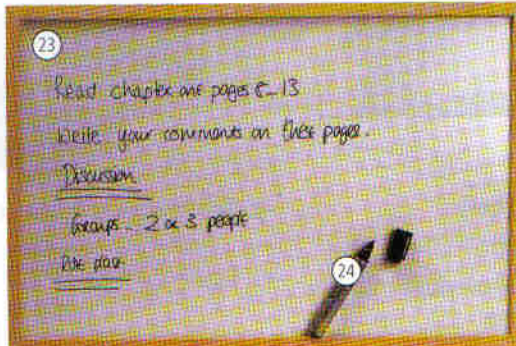 23
Read chapter one pages 8-13
Write your comments on these pages.
Discussion
Groups - 2 or 3 people
24